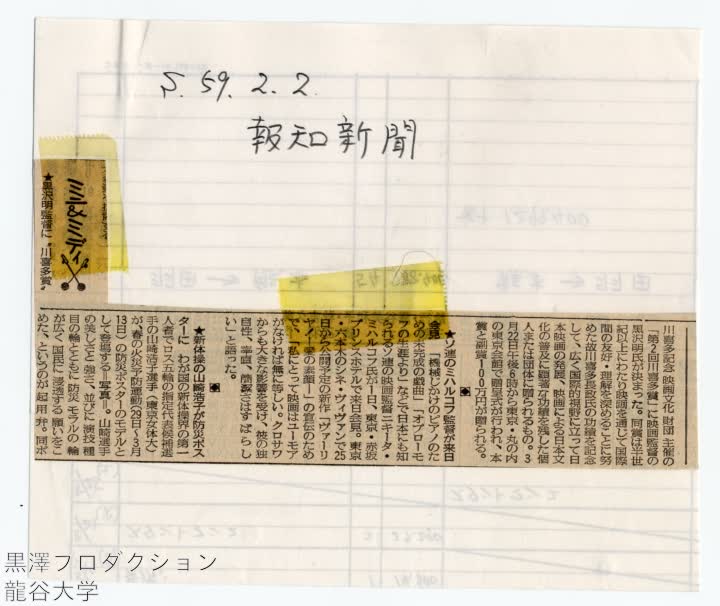 S. 59. 2. 2.
報知新聞
ミニ&ミディ
★黒沢明監督に“川喜多賞”
川喜多記念映画文化財団主催の
「第2回川喜多賞」に映画監督の
黒沢明氏が決まった。同賞は半世
紀以上にわたり映画を通して国際
間の友好・理解を深めることに努
めた故川喜多長政氏の功績を記念
して、広く国際的視野に立って日
本映画の発展、映画による日本文
化の普及に顕著な功績を残した個
人または団体に贈られるもの。3
月22日午後6時から東京・丸の内
の東京会館で贈呈式が行われ、本
賞と副賞100万円が贈られる。
★ソ連のミハルコフ監督が来日
会見 「機械じかけのピアノのた
めの未完成の戯曲」「オブローモ
フの生涯より」などで日本にも知
られるソ連の映画監督ニキータ・
ミハルコフ氏が1日、東京・赤坂
プリンスホテルで来日会見。東京
・六本木のシネ・ヴィヴァンで25
日から公開予定の新作「ヴァーリ
ャ!愛の素顔」の宣伝のため
で、「私にとって映画はユーモア
がなければ無に等しい。クロサワ
からも大きな影響を受け、彼の独
自性、率直、簡潔さはすばらし
い」と語った。
★新体操の山崎浩子が防災ポス
ターに わが国の新体操界の第一
人者でロス五輪の指定代表候補選
手の山崎浩子選手(東京女体大)
が、春の火災予防運動(29日~3月
13日)の防災ポスターのモデルと
して登場する=写真=。山崎選手
の美しさと強さ、並びに演技種
目の輪とともに防災モデルの輪
が広く国民に浸透する願いをこ
めた、というのが起用弁。同ポ
黒澤プロダクション
龍谷大学